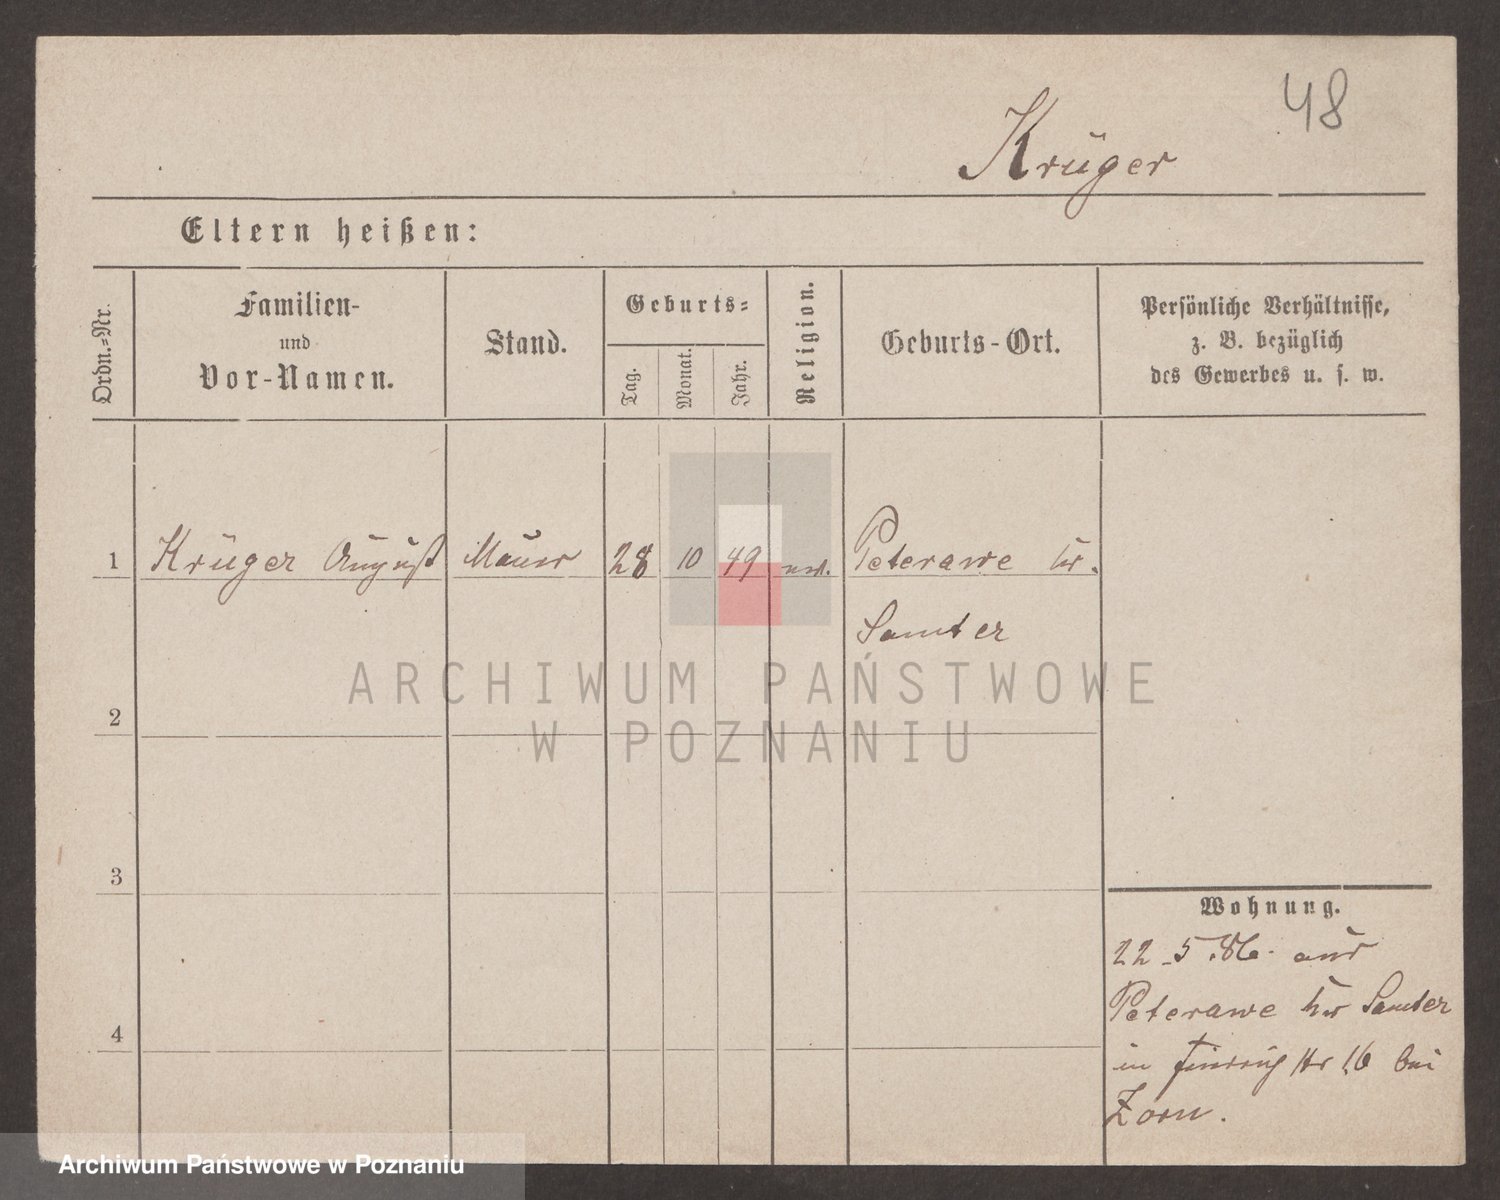 48
Krüger
Eltern heißen:
Ordn.-Nr.
Familien-
und
Vor-Namen.
Stand.
Geburts-
Tag.
Monat.
Jahr.
Religion.
Geburts-Ort.
Persönliche Verhältnisse,
z. B. bezüglich
des Gewerbes u. s. w.
1 Krüger August Maurer 28 10 49 Peterawe Kr.
Samter
2
3
4
Wohnung.
22.5.86. aus
Peterawe Kr Samter
in Nr 16 bei
Zorn.
ARCHIWUM PAŃSTWOWE
W POZNANIU
Archiwum Państwowe w Poznaniu